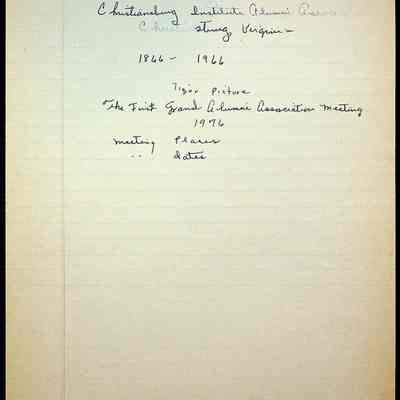 Christiansburg Institute Alumni Assoc
Christianstburg, Virginia
1866 - 1966
Tiger Picture
The First Grand Alumni Association Meeting
1976
Meeting Places
" Dates